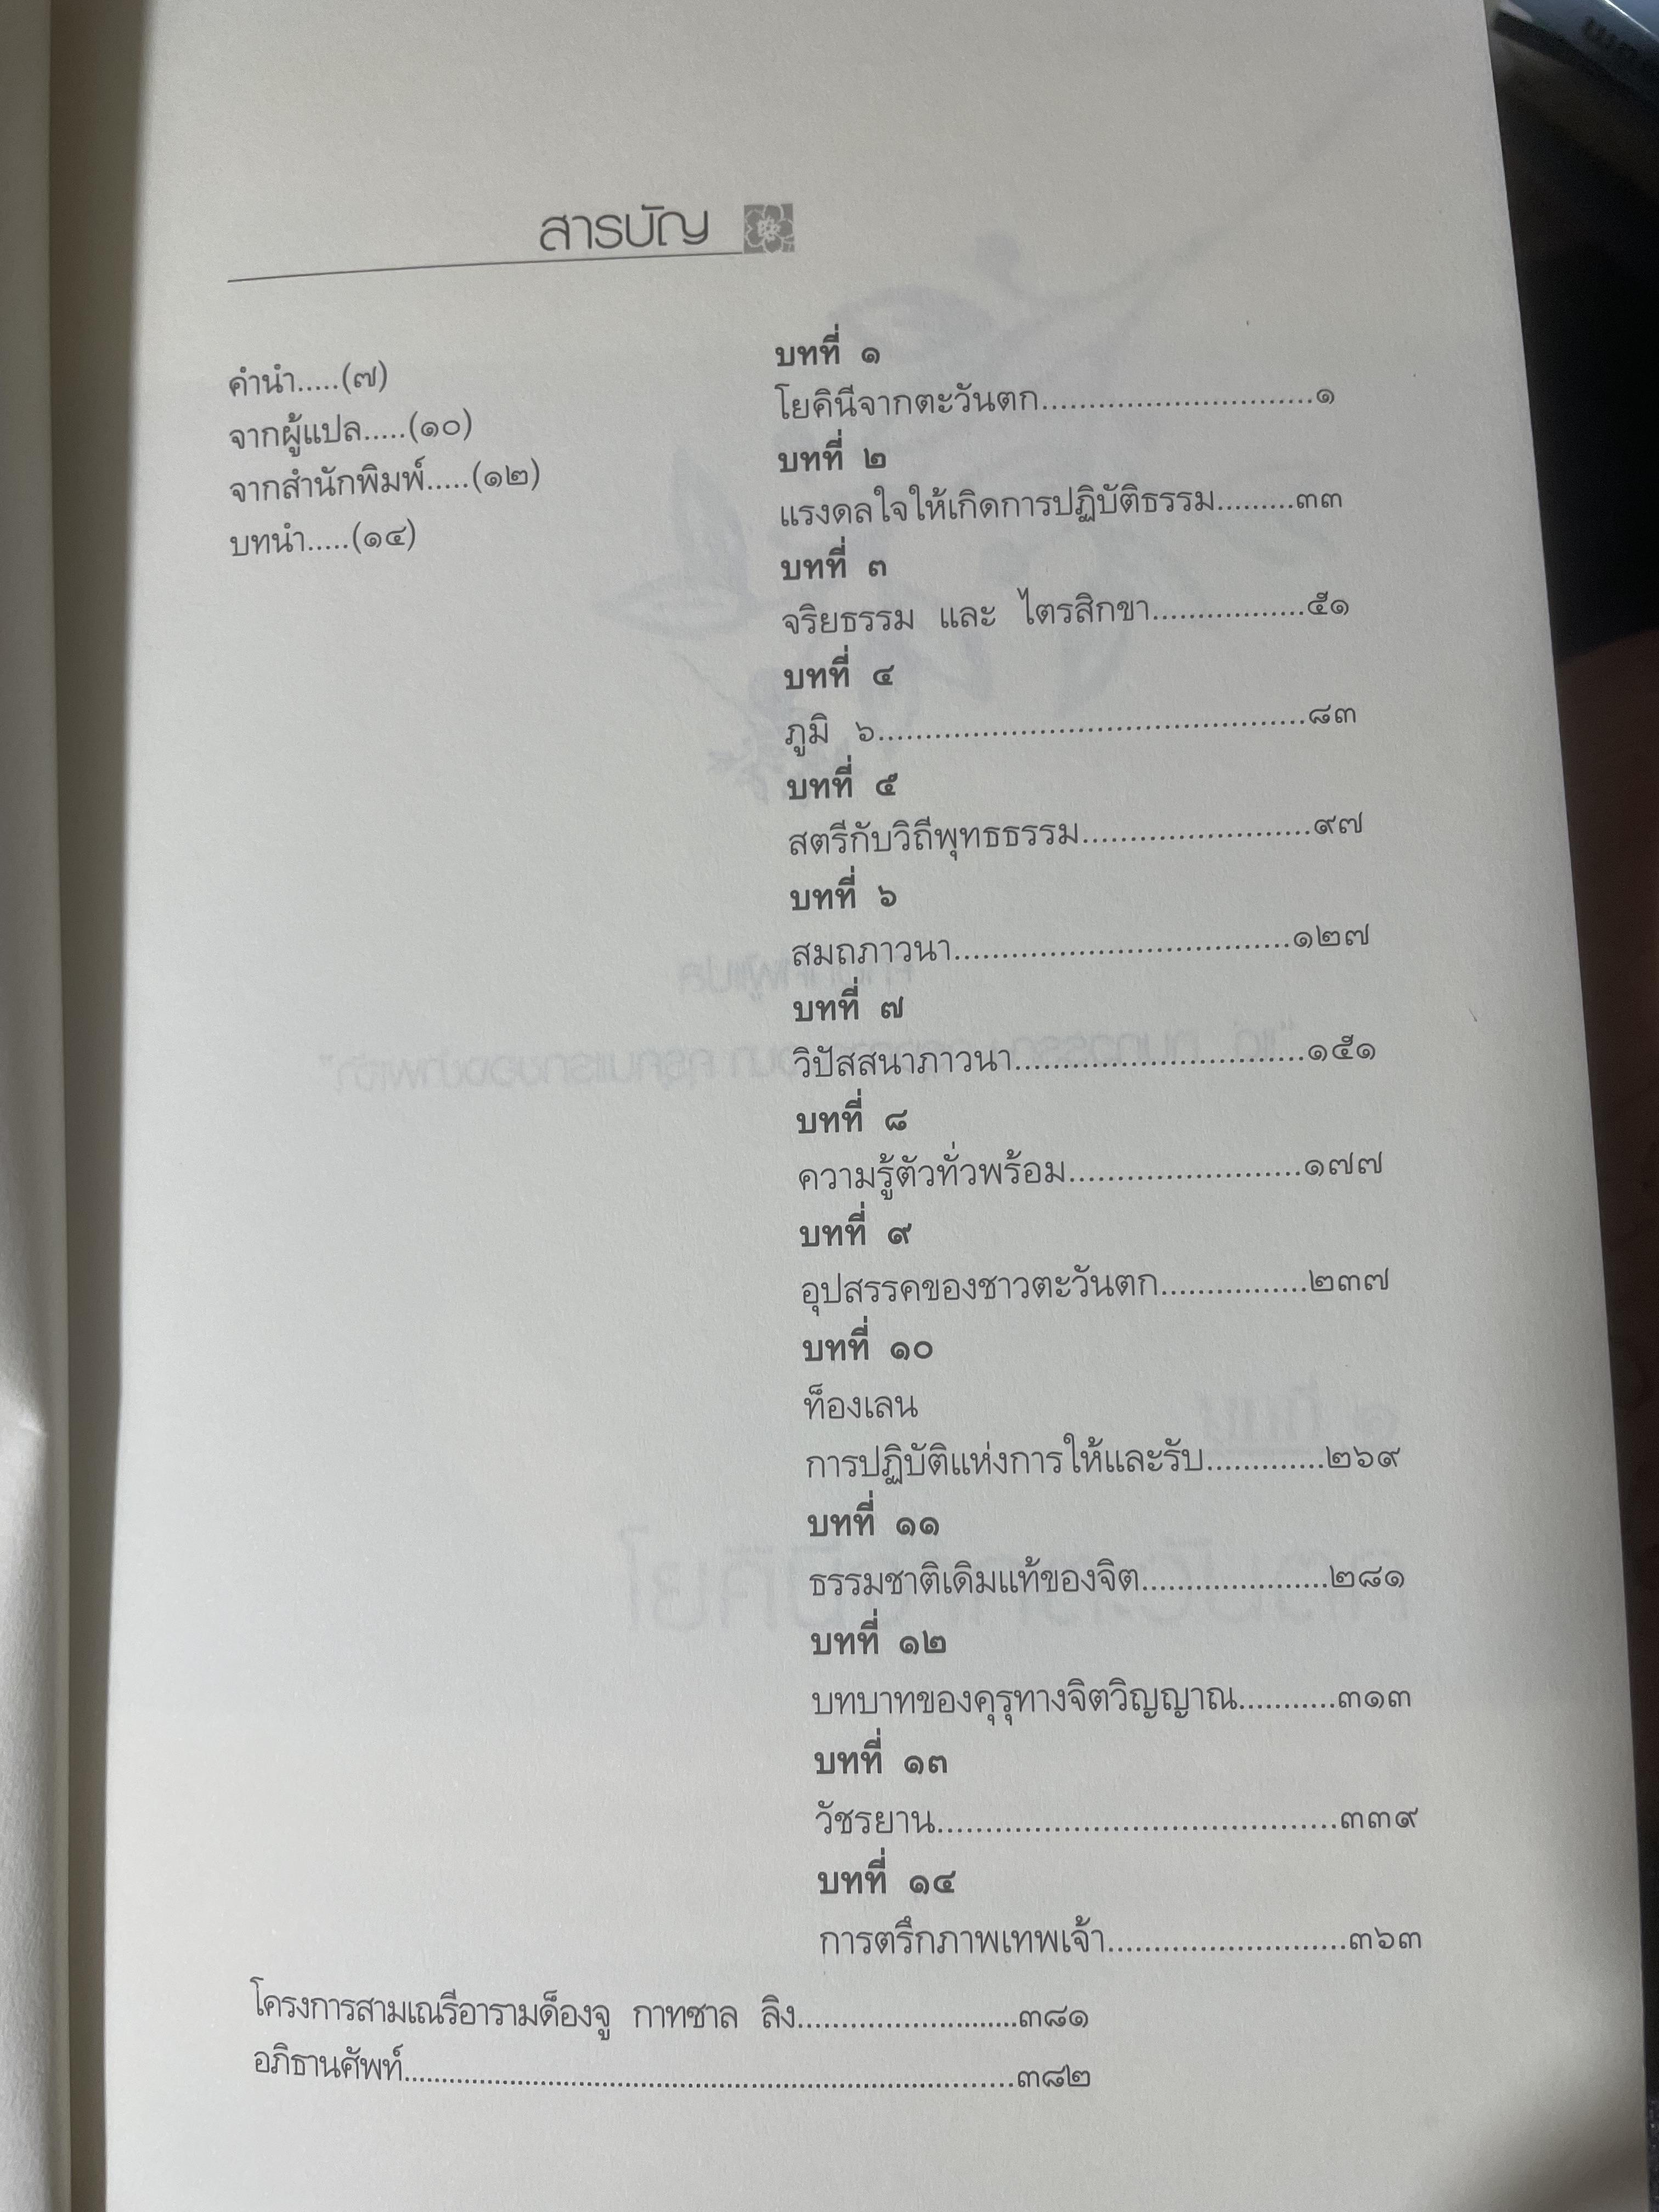 สารบัญ
คำนำ.....(๗)
จากผู้แปล.....(๑๐)
จากสำนักพิมพ์.....(๑๒)
บทนำ.....(๑๔)
บทที่ ๑
โยคินีจากตะวันตก.............................๑
บทที่ ๒
แรงดลใจให้เกิดการปฏิบัติธรรม.........๓๓
บทที่ ๓
จริยธรรม และ ไตรสิกขา.................๕๑
บทที่ ๔
ภูมิ ๖..............................................๘๓
บทที่ ๕
สตรีกับวิถีพุทธธรรม........................๙๗
บทที่ ๖
สมถภาวนา....................................๑๒๗
บทที่ ๗
วิปัสสนาภาวนา...............................๑๕๑
บทที่ ๘
ความรู้ตัวทั่วพร้อม.........................๑๗๗
บทที่ ๙
อุปสรรคของชาวตะวันตก................๒๓๗
บทที่ ๑๐
ท็องเลน
การปฏิบัติแห่งการให้และรับ.............๒๖๙
บทที่ ๑๑
ธรรมชาติเดิมแท้ของจิต.....................๒๘๑
บทที่ ๑๒
บทบาทของคุรุทางจิตวิญญาณ...........๓๑๓
บทที่ ๑๓
วัชรยาน..........................................๓๓๙
บทที่ ๑๔
การตรึกภาพเทพเจ้า..........................๓๖๓
โครงการสามเณรีอารามด็องจู กาทซาล ลิง.........................๓๘๑
อภิธานศัพท์...................................................................................๓๘๒